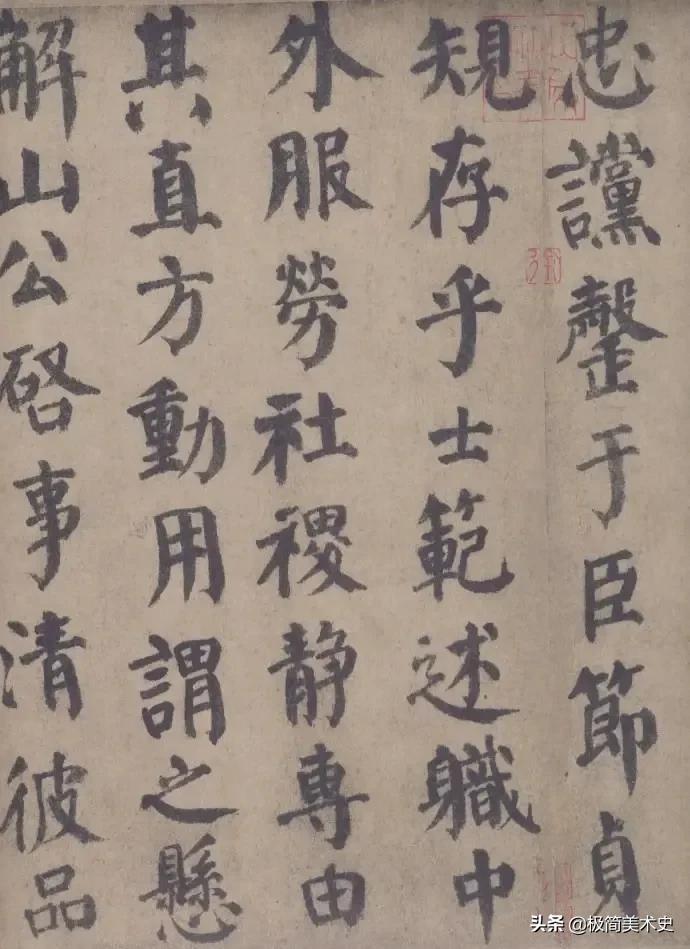 忠讜罄于臣節貞
規存乎士範述職中
外服勞社稷静專由
其直方動用謂之懸
解山公啓事清彼品
头条 @极简美术史